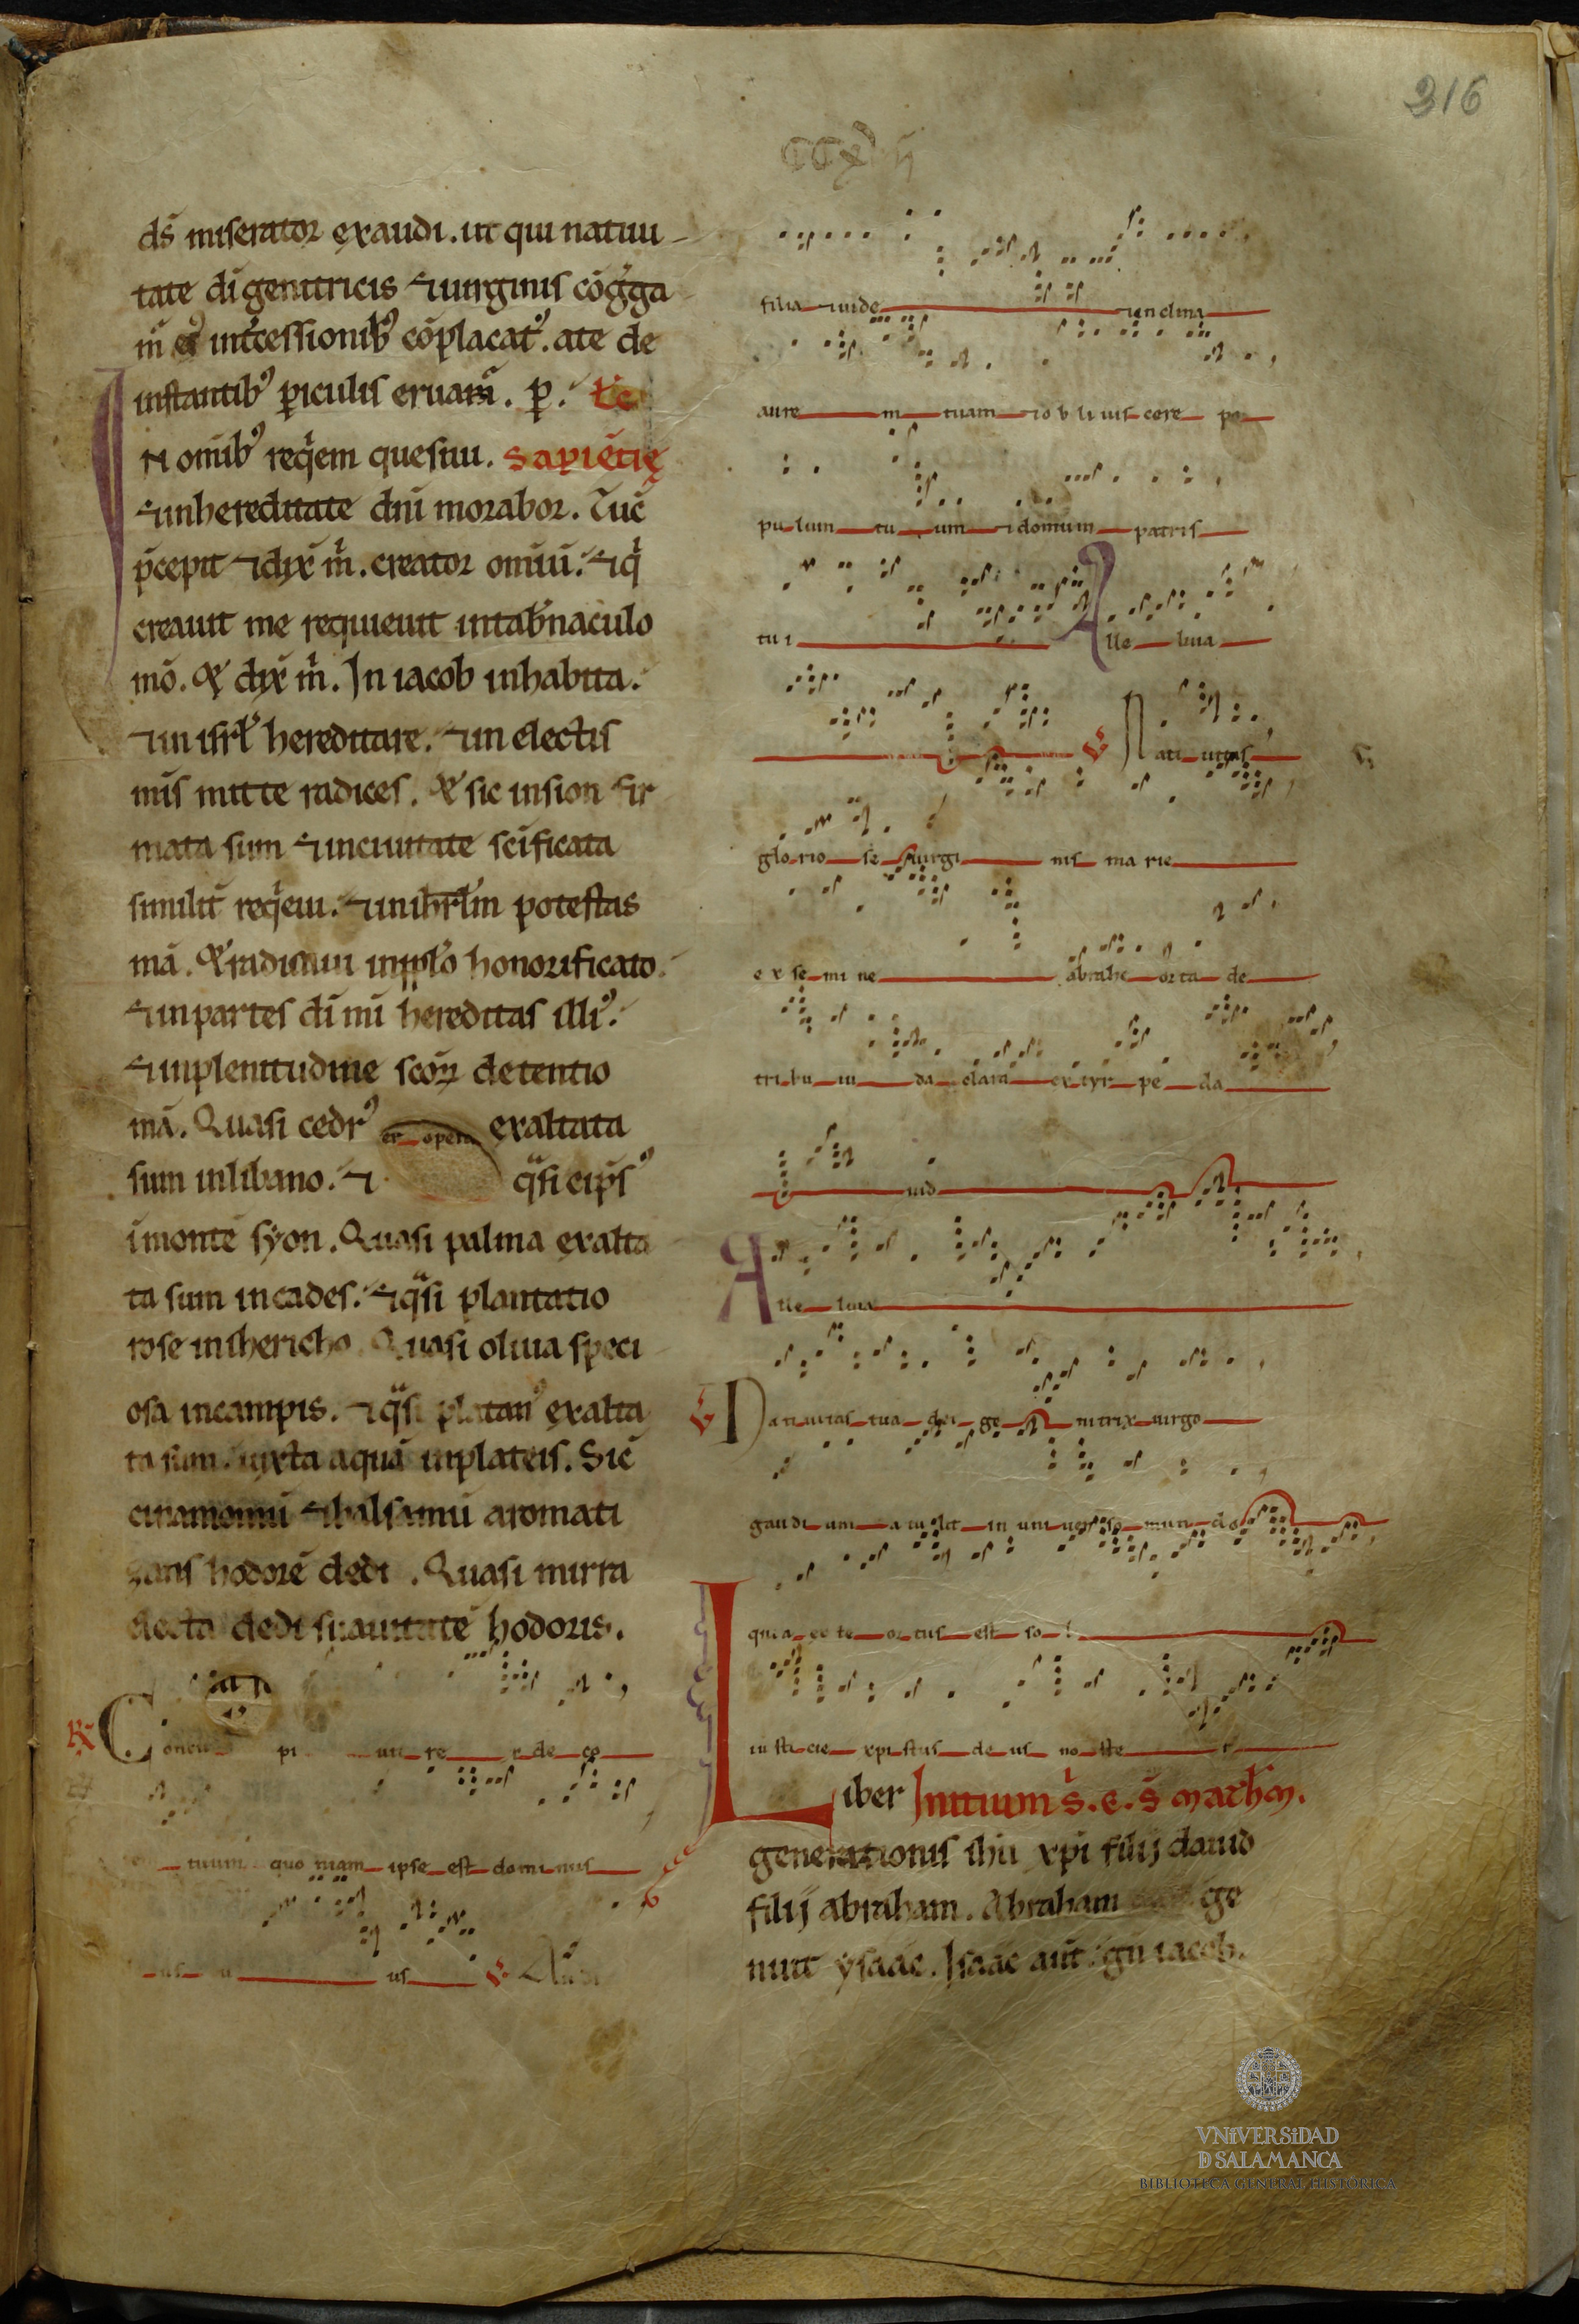 316
ds̄ miserator exaudi. ut qui natiui
tate dī genitricis ⁊ uirginis cōgͥga
m̄ eiꝰ int̄cessionibꝰ cōplacatꝰ. a te de
instantibꝰ ꝑiculis eruam̄. ꝑ. Lc̄
IN om̄ibꝰ reqͥem quesiui. Sapiētię
⁊ in hereditate dn̄i morabor. Tūc
p̄cepit ⁊ dix̄ mͥ. creator om̄iū. ⁊ qͥ
creauit me requieuit in tab̄naculo
mō. Et dix̄ mͥ. In iacob inhabita.
⁊ in isrl̄ hereditare. ⁊ in electis
mis mitte radices. Et sic in sion fir
mata sum ⁊ in ciuitate sc̄ificata
similit̄ reqͥeui. ⁊ in ihrl̄m potestas
mā. Et radicaui in pp̄lo honorificato.
⁊ in partes dī mī hereditas illiꝰ.
⁊ in plenitudine sc̄oꝝ detentio
mā. Quasi cedrꝰ exaltata
er opera
sum in libano. ⁊ qͣsi cip̄sꝰ
ī monte syon. Quasi palma exalta
ta sum in cades. ⁊ qͣsi plantatio
rose in ihericho. Quasi oliua speci
osa in campis. ⁊ qͣsi platanꝰ exalta
ta sum. iuxta aquā in plateis. Sic̄
cinamomū ⁊ balsamū aromati
zans hodorē dedi. Quasi mirra
electa dedi suauitatē hodoris.
R̄ Concu pi uit re x de co
rem tuum quo niam ipse est dominus
us V̄ Audi
filia ⁊ uide ⁊ inclina
aure m tuam ⁊ obliuiscere po
pulum tu um ⁊ domum patris
tui Alle luia
V̄ Natiuitas
glorio se uirgi nis marie
ex semi ne abrahe orta de
tribu iu da clara ex tyr pe da
uid
Alle luia
V̄ Natiuitas tua dei ge nitrix uirgo
gaudi um a nu ciauit in uni uerso mun do
quia ex te ortus est so l
iusticie xpistus de us noste r
Liber Initium s̄. e. s̄ matħm.
generationis ihū xpi filij dauid
filij abraham. Abraham ge
nuit ysaac. Isaac aut̄ gn̄ iacob.
VNiVERSiDAD
D SALAMANCA
BIBLIOTECA GENERAL HISTÓRICA